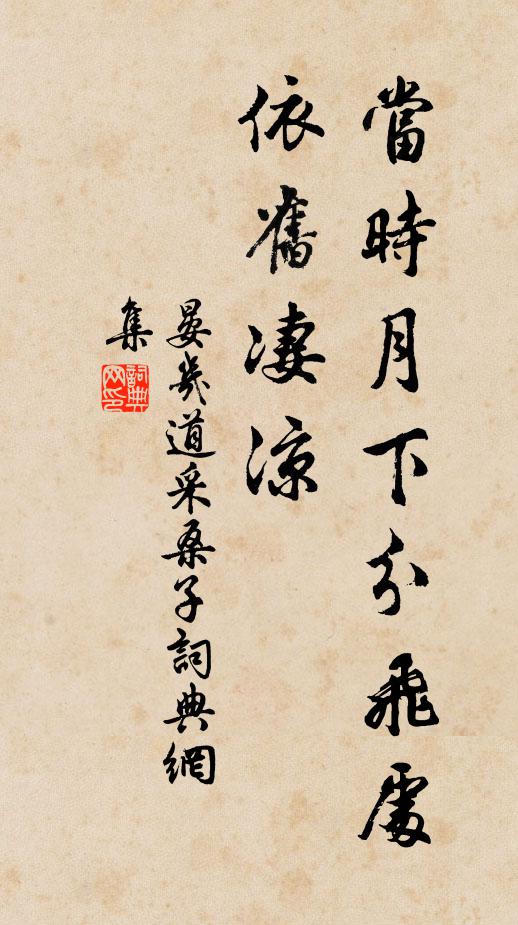 當時月下分飛處
依舊凄涼
晏幾道采桑子詞典網
集
詞典網印